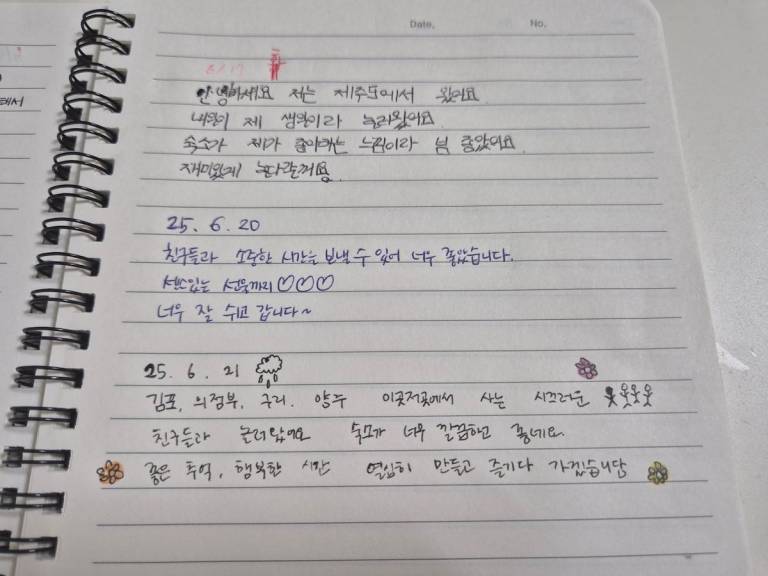 Date.
No.
6/17 화
안녕하세요 저는 제주도에서 왔어요.
내일이 제 생일이라 놀러왔어요
숙소가 제가 좋아하는 느낌이라 넘 좋았어요
재미있게 놀다갈께용.
테서
25. 6. 20
친구들과 소중한 시간을 보낼 수 있어 너무 좋았습니다.
센스있는 선물까지 ♡♡♡
너무 잘 쉬고 갑니다~
25. 6. 21
김포, 의정부, 구리, 양주 이곳저곳에서 사는 시끄러운
친구들과 놀러왔어요 숙소가 너무 깔끔하고 좋네요.
좋은 추억, 행복한 시간 열심히 만들고 즐기다 가겠습니닷